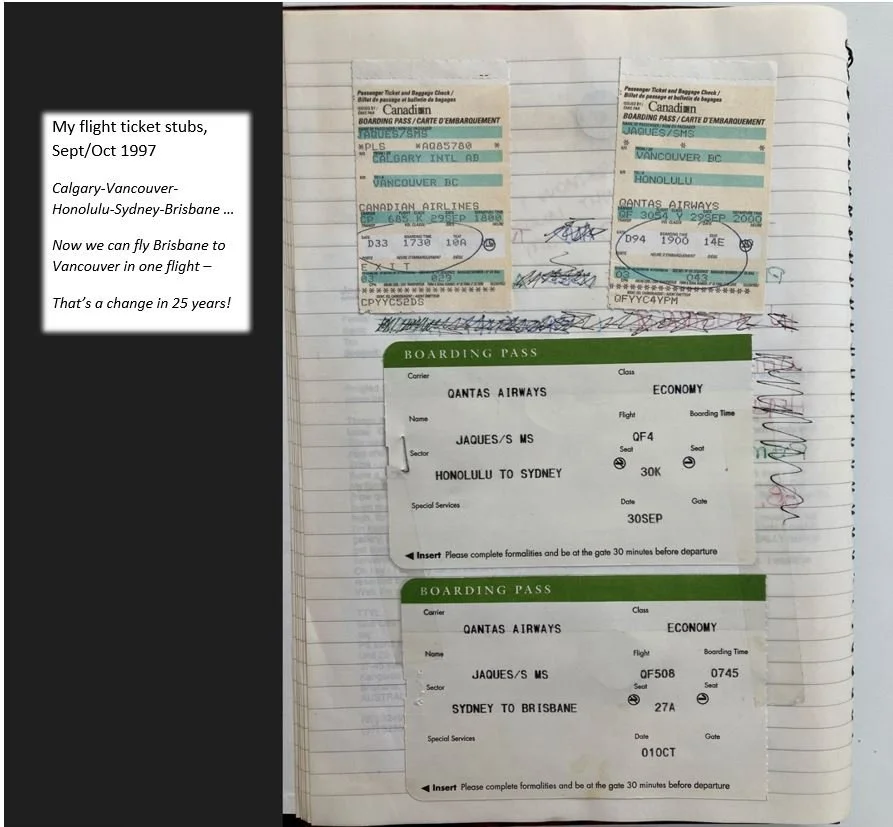 My flight ticket stubs,
Sept/Oct 1997
Calgary-Vancouver-
Honolulu-Sydney-Brisbane …
Now we can fly Brisbane to
Vancouver in one flight –
That's a change in 25 years!
Passenger Ticket and Baggage Check /
Billet de passage et bulletin de bagages
ISSUED BY /
Canadian
BOARDING PASS / CARTE D'EMBARQUEMENT
JAQUES/SMS
*PLS *AQ85780 *
CALGARY INTL AB
VANCOUVER BC
CANADIAN AIRLINES
CP 685 K 29SEP 1800
GATE BOARDING TIME SEAT
D33 1730 10A
HEURE D'EMBARQUEMENT
EXIT
03 029
CPYYC52DS
Passenger Ticket and Baggage Check /
Billet de passage et bulletin de bagages
ISSUED BY /
Canadian
BOARDING PASS / CARTE D'EMBARQUEMENT
JAQUES/SMS
* * *
VANCOUVER BC
HONOLULU
QANTAS AIRWAYS
QF 3054 Y 29SEP 2000
GATE BOARDING TIME SEAT
D94 1900 14E
HEURE D'EMBARQUEMENT
03 043
QFYYC4YPM
BOARDING PASS
Carrier Class
QANTAS AIRWAYS ECONOMY
Name Flight Boarding Time
JAQUES/S MS QF4
Sector Seat Seat
HONOLULU TO SYDNEY 30K
Special Services Date Gate
30SEP
◀ Insert Please complete formalities and be at the gate 30 minutes before departure
BOARDING PASS
Carrier Class
QANTAS AIRWAYS ECONOMY
Name Flight Boarding Time
JAQUES/S MS QF508 0745
Sector Seat Seat
SYDNEY TO BRISBANE 27A
Special Services Date Gate
01OCT
◀ Insert Please complete formalities and be at the gate 30 minutes before departure